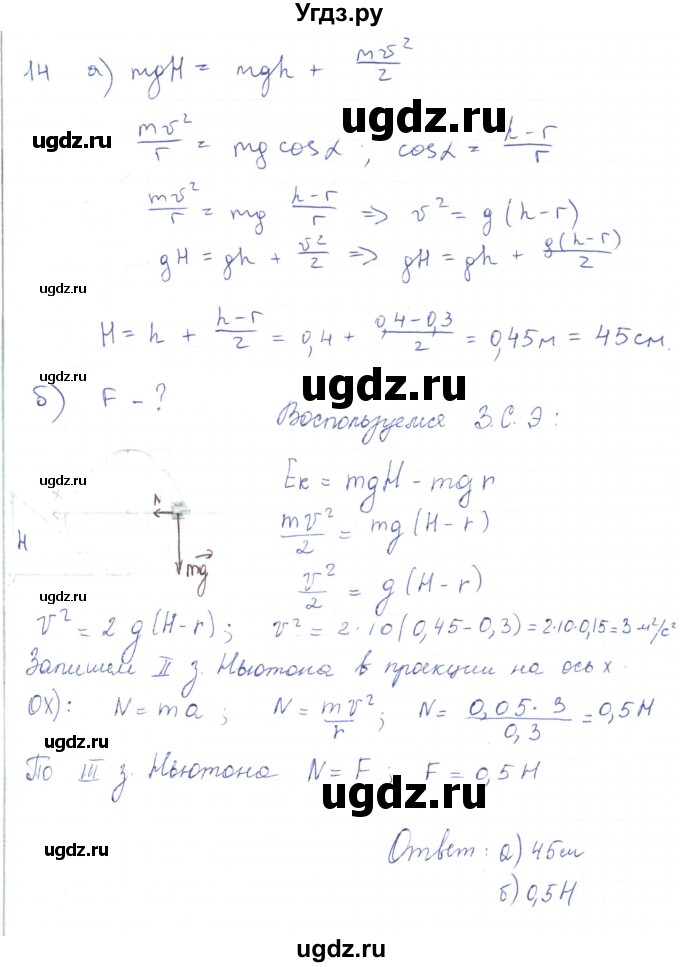 Угдз.ру
14 а) mgH = mgh + mv²/2
ugdz.ru ugdz.ru
mv²/r = mg cosα ; cosα = h-r/r
mv²/r = mg h-r/r => v² = g(h-r)
gH = gh + v²/2 => gH = gh + g(h-r)/2
ugdz.ru
H = h + h-r/2 = 0,4 + 0,4-0,3/2 = 0,45м = 45см.
ugdz.ru
б) F - ?
Воспользуемся З.С.Э:
ugdz.ru
Eк = mgH - mgr
N
mv²/2 = mg(H-r)
H
mg
v²/2 = g(H-r)
ugdz.ru
v² = 2g(H-r); v² = 2·10(0,45-0,3) = 2·10·0,15 = 3 м²/с²
Запишем II з. Ньютона в проекции на ось x
OX): N = ma ; N = mv²/r; N = 0,05·3/0,3 = 0,5Н
ugdz.ru
По III з. Ньютона N = F ; F = 0,5Н
ugdz.ru
ugdz.ru
Ответ: а) 45см
б) 0,5Н
ugdz.ru